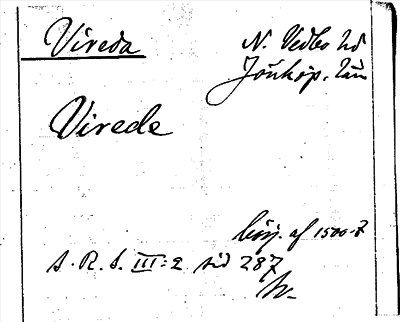 Vireda
N. Vedbo hd
Jönköp. län
Virede
börj. af 1500-t
S. R. S. III:2 sid 287